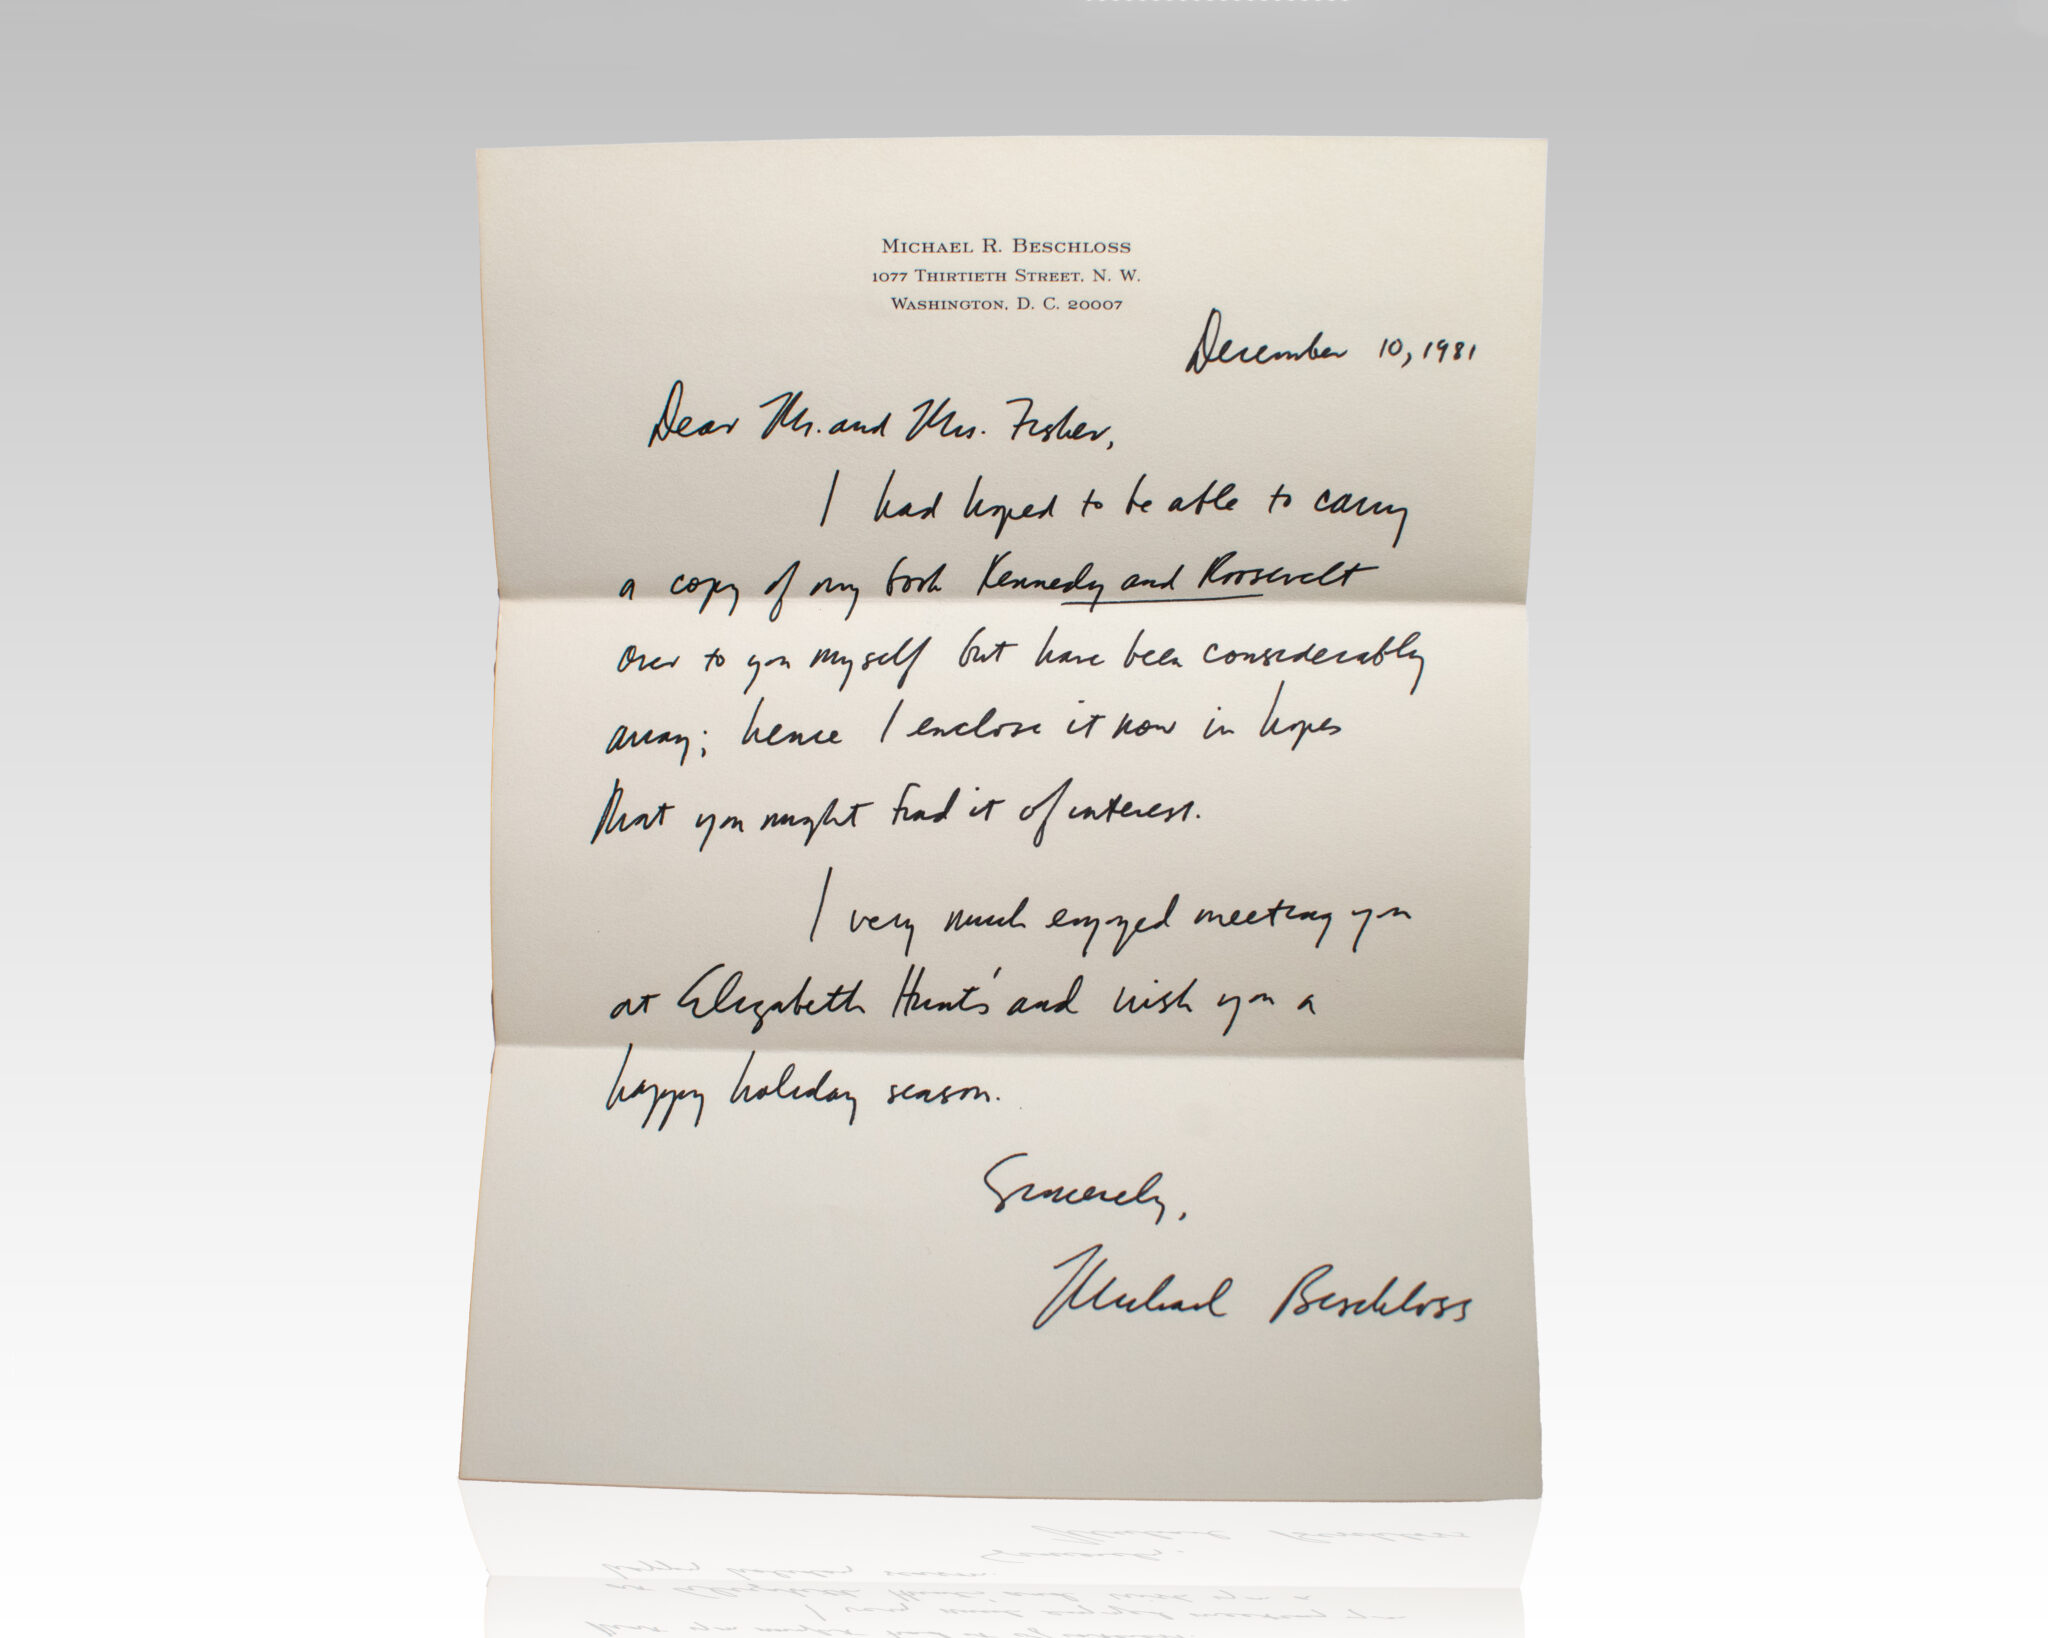 MICHAEL R. BESCHLOSS
1077 THIRTIETH STREET, N. W.
WASHINGTON, D. C. 20007
December 10, 1981
Dear Mr. and Mrs. Fisher,
I had hoped to be able to carry
a copy of my book Kennedy and Roosevelt
over to you myself but have been considerably
away; hence I enclose it now in hopes
that you might find it of interest.
I very much enjoyed meeting you
at Elizabeth Hunt's and wish you a
happy holiday season.
Sincerely,
Michael Beschloss